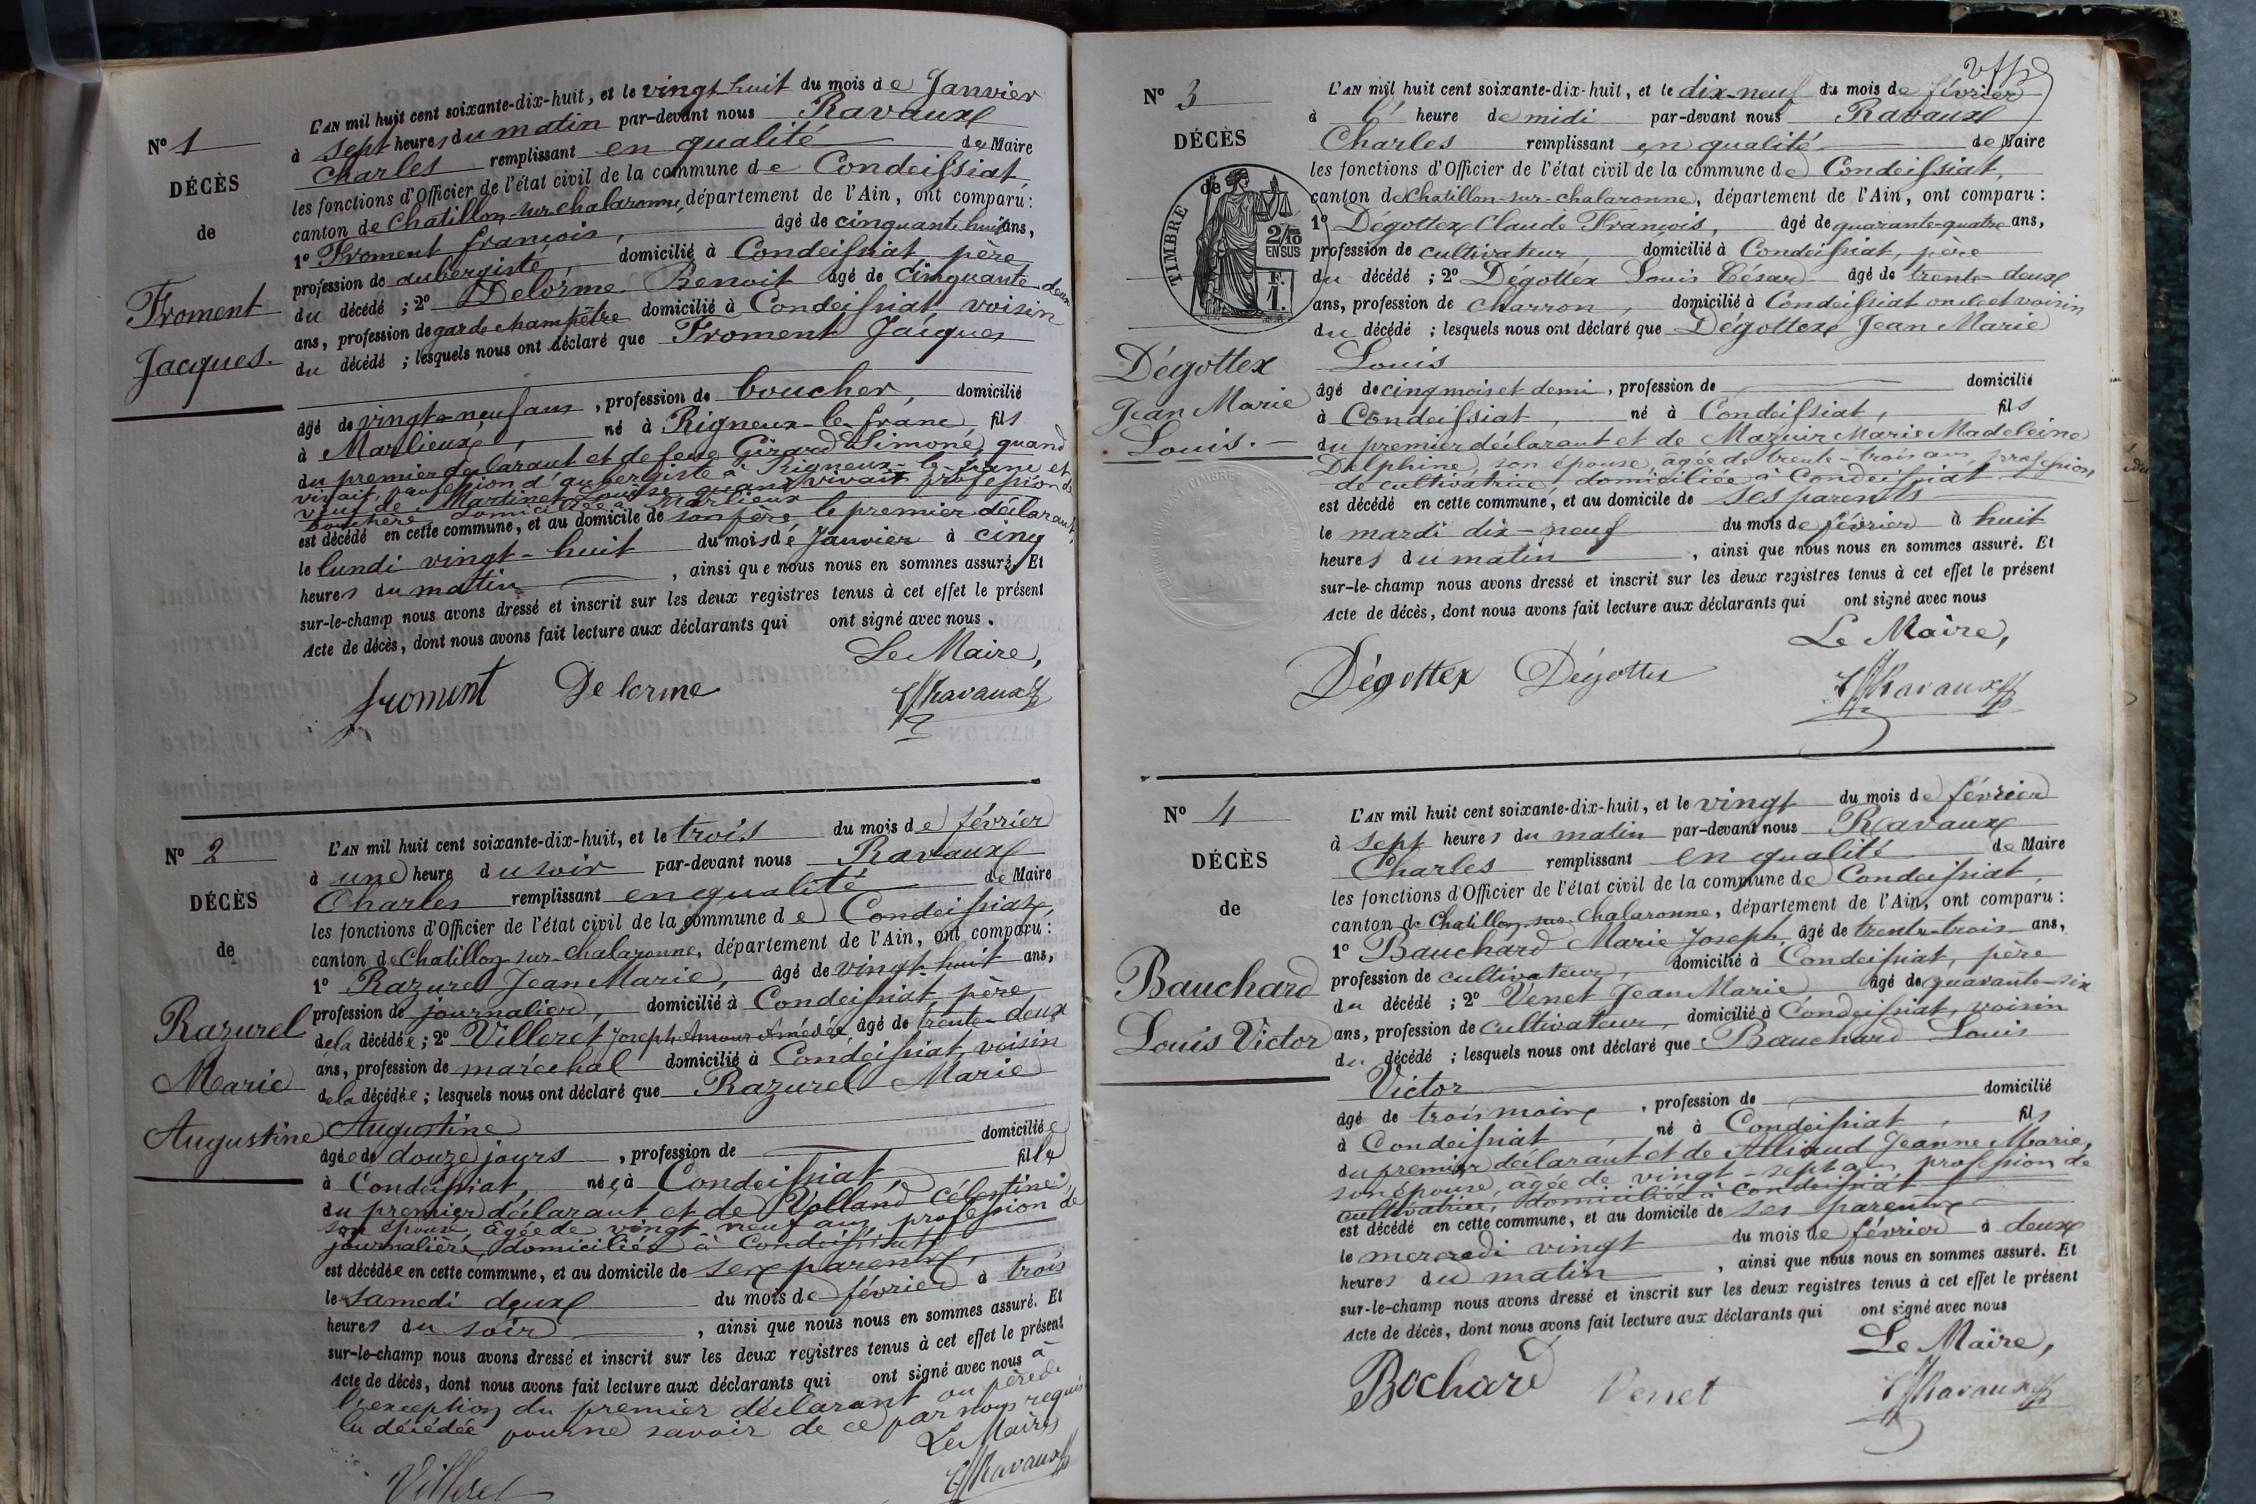 N° 1
DÉCÈS
de
Froment
Jacques.
L'AN mil huit cent soixante-dix-huit, et le vingt huit du mois de Janvier
à sept heures du matin par-devant nous Ravaux
Charles remplissant en qualité de Maire
les fonctions d'Officier de l'état civil de la commune de Condeissiat,
canton de Chatillon-sur-chalaronne, département de l'Ain, ont comparu :
1° Froment françois, âgé de cinquante huit ans,
profession de aubergiste domicilié à Condeissiat, père
du décédé ; 2° Delorme Benoit âgé de cinquante-deux
ans, profession de garde champêtre domicilié à Condeissiat voisin
du décédé ; lesquels nous ont déclaré que Froment Jacques
âgé de vingt-neuf ans, profession de boucher, domicilié
à Marlieux, né à Rigneux-le-franc, fils
du premier déclarant et de feue Girard Simone, quand
vivait, profession d'aubergiste à Rigneux-le-franc et
veuf de Martinet Louise quand vivait profession de
bouchère domiciliée à Marlieux
est décédé en cette commune, et au domicile de son père le premier déclarant,
le lundi vingt-huit du mois de Janvier à cinq
heures du matin, ainsi que nous nous en sommes assuré. Et
sur-le-champ nous avons dressé et inscrit sur les deux registres tenus à cet effet le présent
Acte de décès, dont nous avons fait lecture aux déclarants qui ont signé avec nous.
Le Maire,
froment Delorme Ravaux
N° 2
DÉCÈS
de
Razurel
Marie
Augustine
L'AN mil huit cent soixante-dix-huit, et le trois du mois de février
à une heure du soir par-devant nous Ravaux
Charles remplissant en qualité de Maire
les fonctions d'Officier de l'état civil de la commune de Condeissiat,
canton de Chatillon-sur-chalaronne, département de l'Ain, ont comparu :
1° Razurel Jean Marie, âgé de vingt-huit ans,
profession de journalier, domicilié à Condeissiat, père
de la décédée ; 2° Villeret Joseph Amour Amédée, âgé de trente-deux
ans, profession de maréchal domicilié à Condeissiat, voisin
de la décédée ; lesquels nous ont déclaré que Razurel Marie
Augustine
âgée de douze jours, profession de domiciliée
à Condeissiat, née à Condeissiat, fille
du premier déclarant et de Volland Célestine,
son épouse, âgée de vingt neuf ans, profession de
journalière, domiciliée à Condeissiat
est décédée en cette commune, et au domicile de ses parents,
le samedi deux du mois de février à trois
heures du soir, ainsi que nous nous en sommes assuré. Et
sur-le-champ nous avons dressé et inscrit sur les deux registres tenus à cet effet le présent
Acte de décès, dont nous avons fait lecture aux déclarants qui ont signé avec nous à
l'exception du premier déclarant ou père de
la décédée pour ne savoir de ce par nous requis
Le Maire
Villeret Ravaux
N° 3
DÉCÈS
de
TIMBRE
2/10
EN SUS
F.
1.
Dégottex
Jean Marie
Louis.
L'AN mil huit cent soixante-dix-huit, et le dix-neuf du mois de février
à l' heure de midi par-devant nous Ravaux
Charles remplissant en qualité de Maire
les fonctions d'Officier de l'état civil de la commune de Condeissiat,
canton de Chatillon-sur-chalaronne, département de l'Ain, ont comparu :
1° Dégottex Claude François, âgé de quarante-quatre ans,
profession de cultivateur, domicilié à Condeissiat, père
du décédé ; 2° Dégottex Louis César âgé de trente-deux
ans, profession de charron, domicilié à Condeissiat oncle et voisin
du décédé ; lesquels nous ont déclaré que Dégottex Jean Marie
Louis
âgé de cinq mois et demi, profession de domicilié
à Condeissiat, né à Condeissiat, fils
du premier déclarant et de Mazuir Marie Madeleine
Delphine, son épouse, âgée de trente-trois ans, profession
de cultivatrice, domiciliée à Condeissiat
est décédé en cette commune, et au domicile de ses parents
le mardi dix-neuf du mois de février à huit
heures du matin, ainsi que nous nous en sommes assuré. Et
sur-le-champ nous avons dressé et inscrit sur les deux registres tenus à cet effet le présent
Acte de décès, dont nous avons fait lecture aux déclarants qui ont signé avec nous
Le Maire,
Dégottex Dégottex Ravaux
N° 4
DÉCÈS
de
Bauchard
Louis Victor
L'AN mil huit cent soixante-dix-huit, et le vingt du mois de février
à sept heures du matin par-devant nous Ravaux
Charles remplissant en qualité de Maire
les fonctions d'Officier de l'état civil de la commune de Condeissiat,
canton de Chatillon-sur-Chalaronne, département de l'Ain, ont comparu :
1° Bauchard Marie Joseph, âgé de trente-trois ans,
profession de cultivateur, domicilié à Condeissiat, père
du décédé ; 2° Venet Jean Marie âgé de quarante-six
ans, profession de cultivateur, domicilié à Condeissiat, voisin
du décédé ; lesquels nous ont déclaré que Bauchard Louis
Victor
âgé de trois mois, profession de domicilié
à Condeissiat, né à Condeissiat, fils
du premier déclarant et de Alliaud Jeanne Marie,
son épouse, âgée de vingt-sept ans, profession de
cultivatrice, domiciliée à Condeissiat
est décédé en cette commune, et au domicile de ses parents
le mercredi vingt du mois de février à deux
heures du matin, ainsi que nous nous en sommes assuré. Et
sur-le-champ nous avons dressé et inscrit sur les deux registres tenus à cet effet le présent
Acte de décès, dont nous avons fait lecture aux déclarants qui ont signé avec nous
Le Maire,
Bochard Venet Ravaux